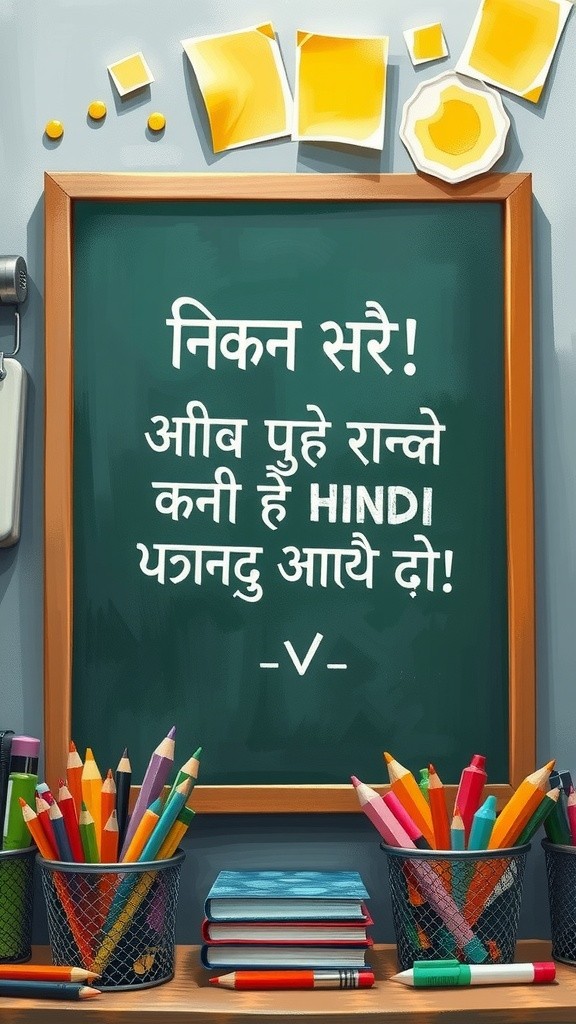 निकन भरै!
अीिव पुहे रान्ले
कनी है HINDI
पत्रानदु आायै ढो!
-V-